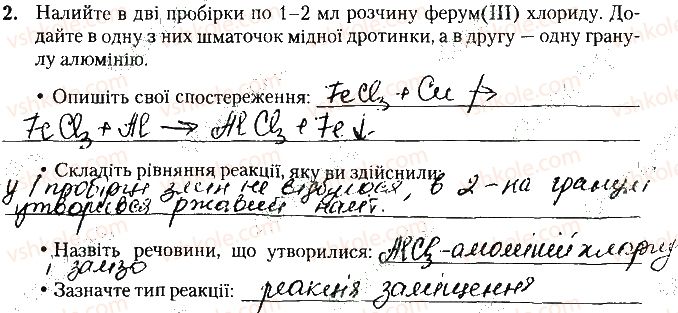 2. Налийте в дві пробірки по 1–2 мл розчину ферум(III) хлориду. До-
дайте в одну з них шматочок мідної дротинки, а в другу – одну грану-
лу алюмінію.
• Опишіть свої спостереження: FeCl₃ + Cu ↛
FeCl₃ + Al → AlCl₃ + Fe↓.
• Складіть рівняння реакції, яку ви здійснили:
у 1 пробірці змін не відбулося, в 2 - на гранулі
утворився ржавий наліт.
• Назвіть речовини, що утворилися: AlCl₃ - алюміній хлорид
і залізо
• Зазначте тип реакції: реакція заміщення